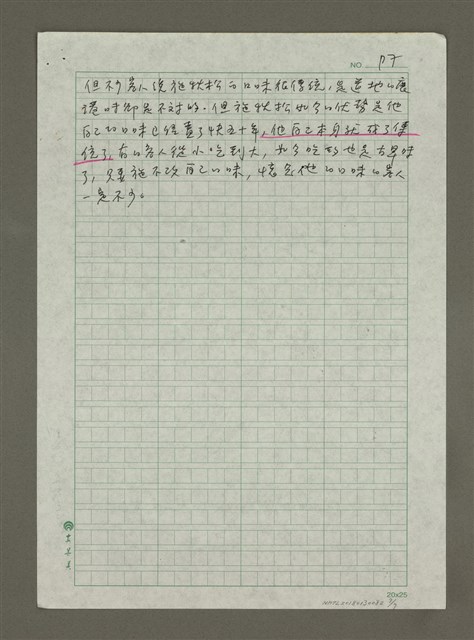 NO. P7
但不少客人說施秋松的口味很傳統，是道地的鹿
港味卻是不對的。但施秋松如今的優勢是他
自己的口味已經賣了快五十年，他自己本身就成了傳
統了，有的客人從小吃到大，如今吃的也是古早味
了，只要施不改自己的味，懷念他的口味的客人
一定不少。
20x25